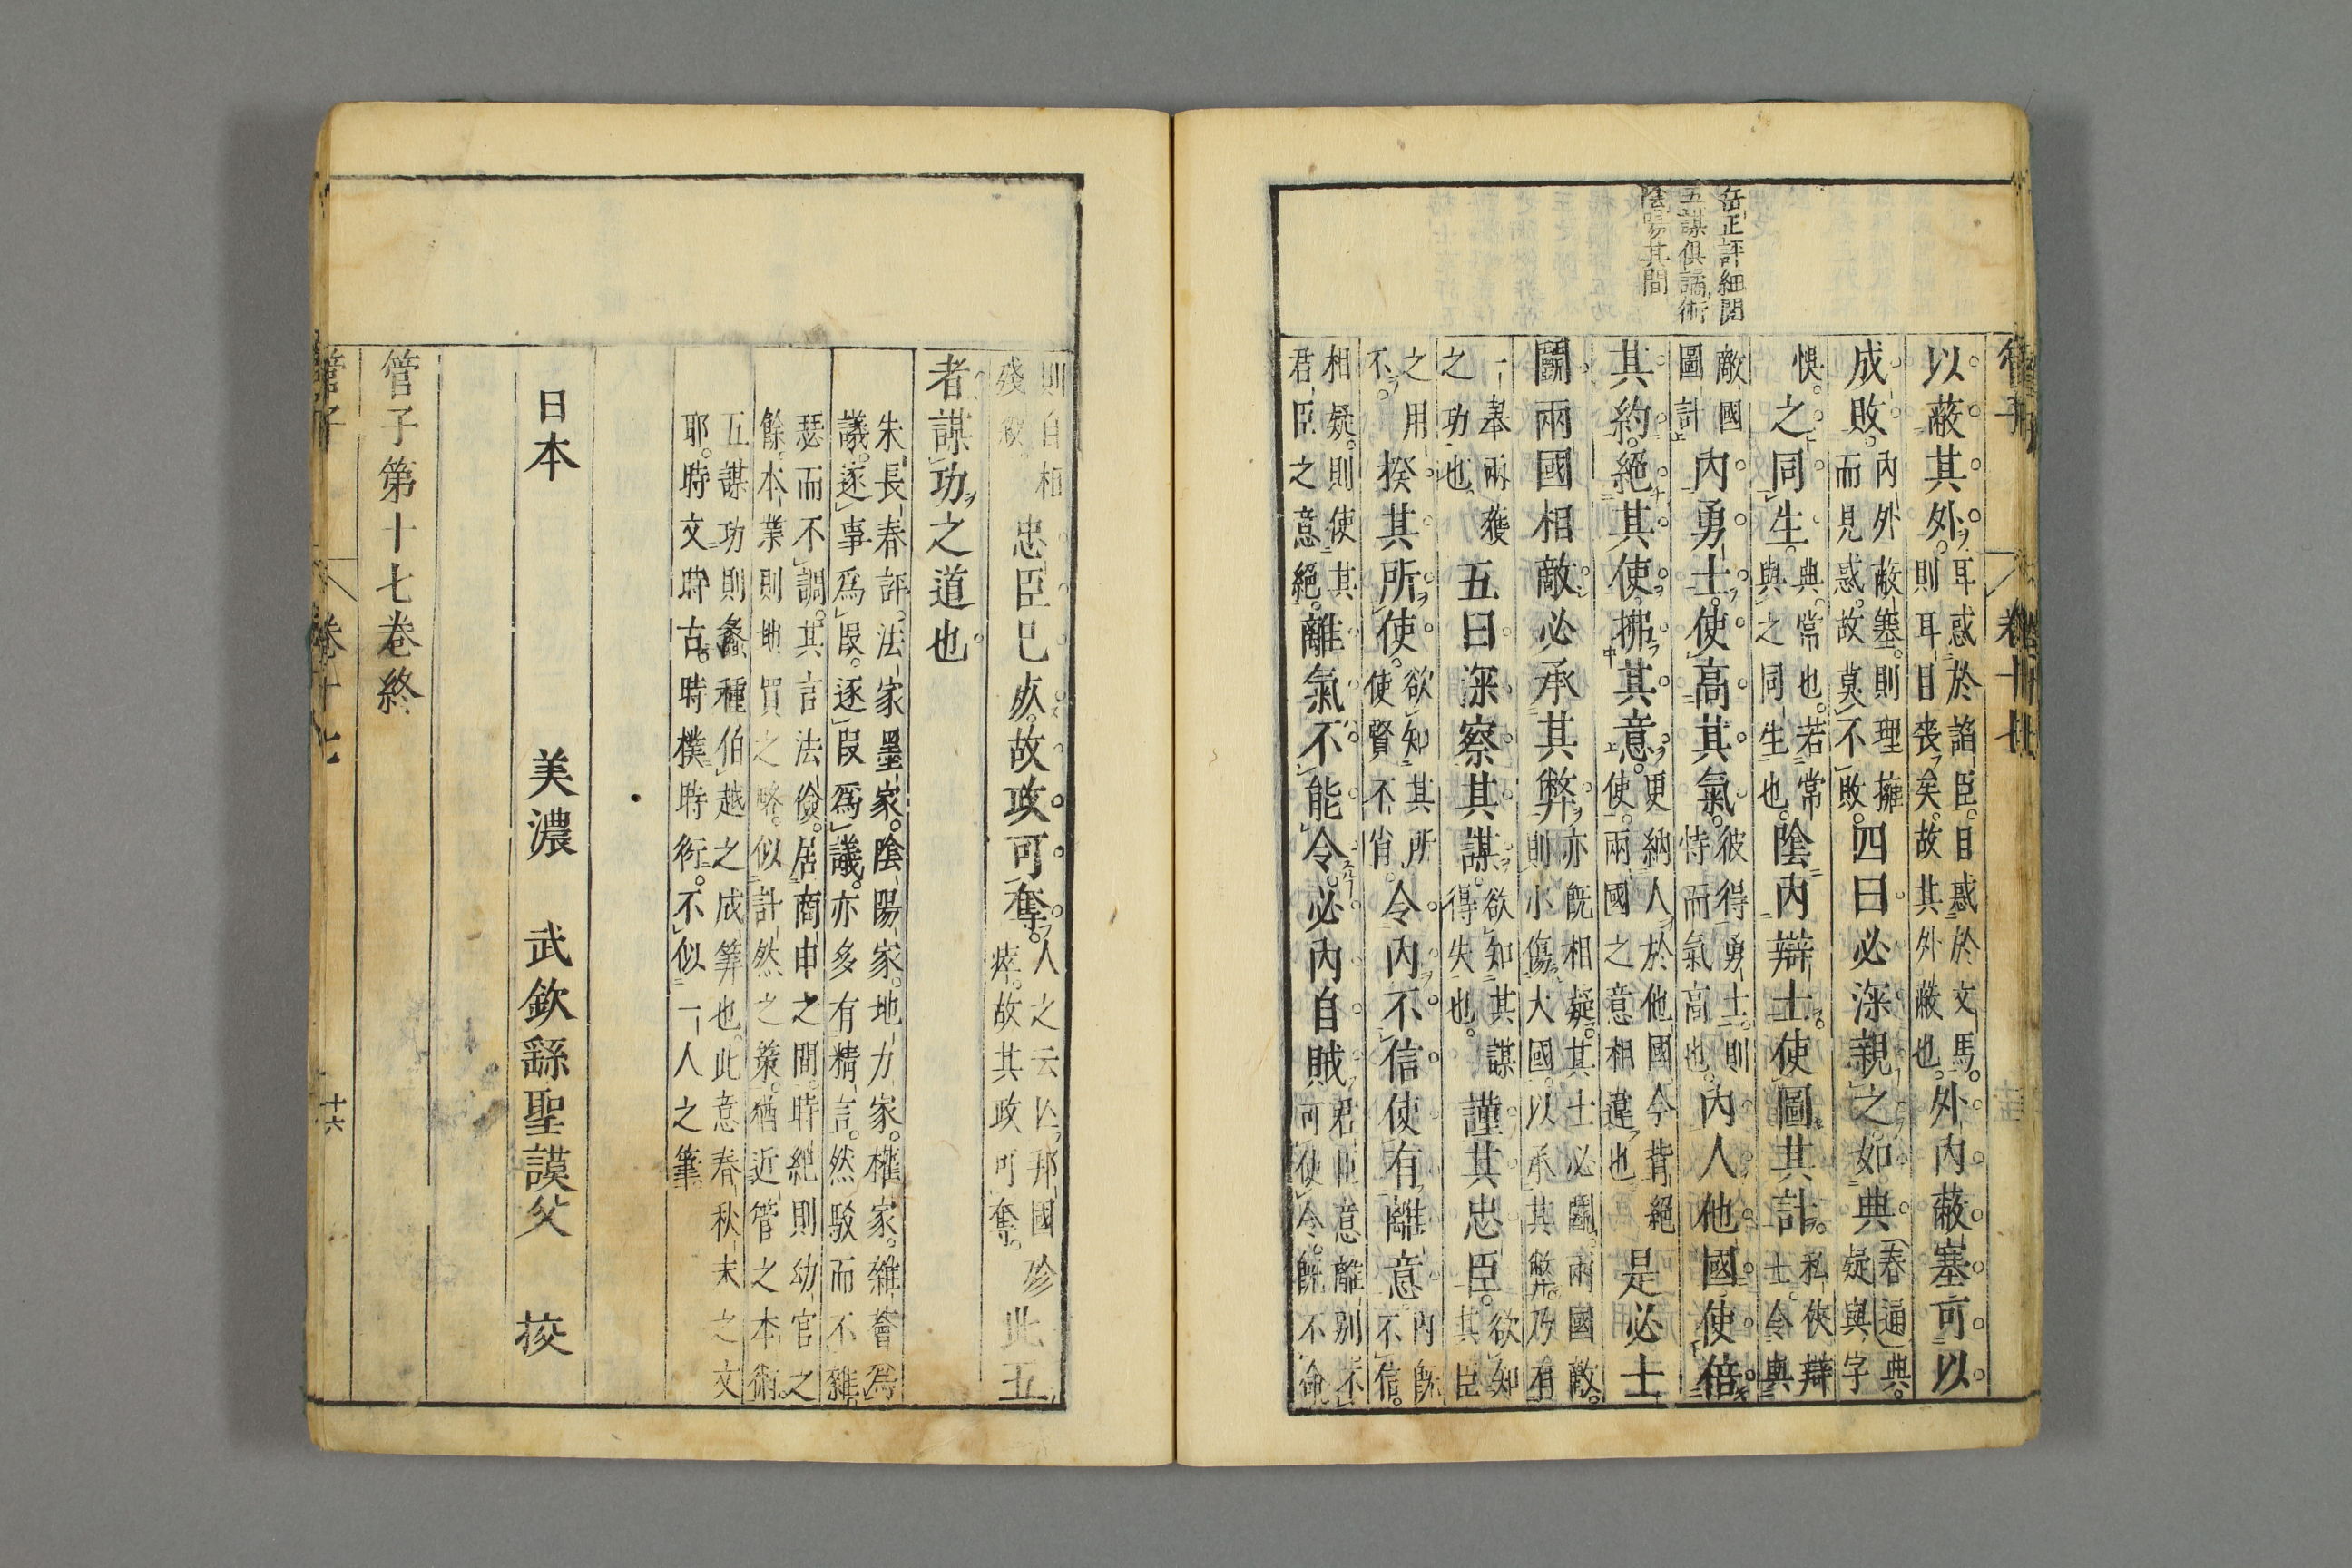 岳正評細閱
五謀俱譎術
陰陽其間
管子 卷十七
以蔽其外耳惑於諂臣目惑於文馬則耳目喪矣故其外蔽也外內蔽塞可以
成敗內外蔽塞則理擁而見惑故莫不敗四曰必深親之如典春通典疑與字
悞之同生典常也若常與之同生也陰內辯士使圖其計私俠辯士令與
敵國圖計內勇士使高其氣彼得勇士則恃而氣高也內人他國使倍
其約絕其使拂其意更納人於他國令背絕使兩國之意相違也是必士
鬭兩國相敵必承其弊亦既相疑其士必鬭兩國敵則小傷大國以承其弊乃有
一舉兩獲之功也五曰深察其謀欲知其謀得失也謹其忠臣欲知其臣
之用不揆其所使欲知其所使賢不肖令內不信使有離意內既不信
相疑則使其君臣之意絕離氣不能令必內自賊君臣意離別不可使令既不令
則自相殘忠臣已死故政可奪人之云亡邦國殄瘁故其政可奪此五
者謀功之道也
朱長春評法家墨家陰陽家地力家權家雜薈爲
議逐事爲叚逐叚爲議亦多有精言然駁而不雜
瑟而不調其言法儉居商申之間時絕則幼官之
餘本業則地買之略似計然之策猶近管之本術
五謀功則蠡種伯越之成筭也此意春秋末之文
耶時文時古時樸時衍不似一人之筆
日本 美濃 武欽繇聖謨父 挍
管子第十七卷終
管子 卷十七 十六